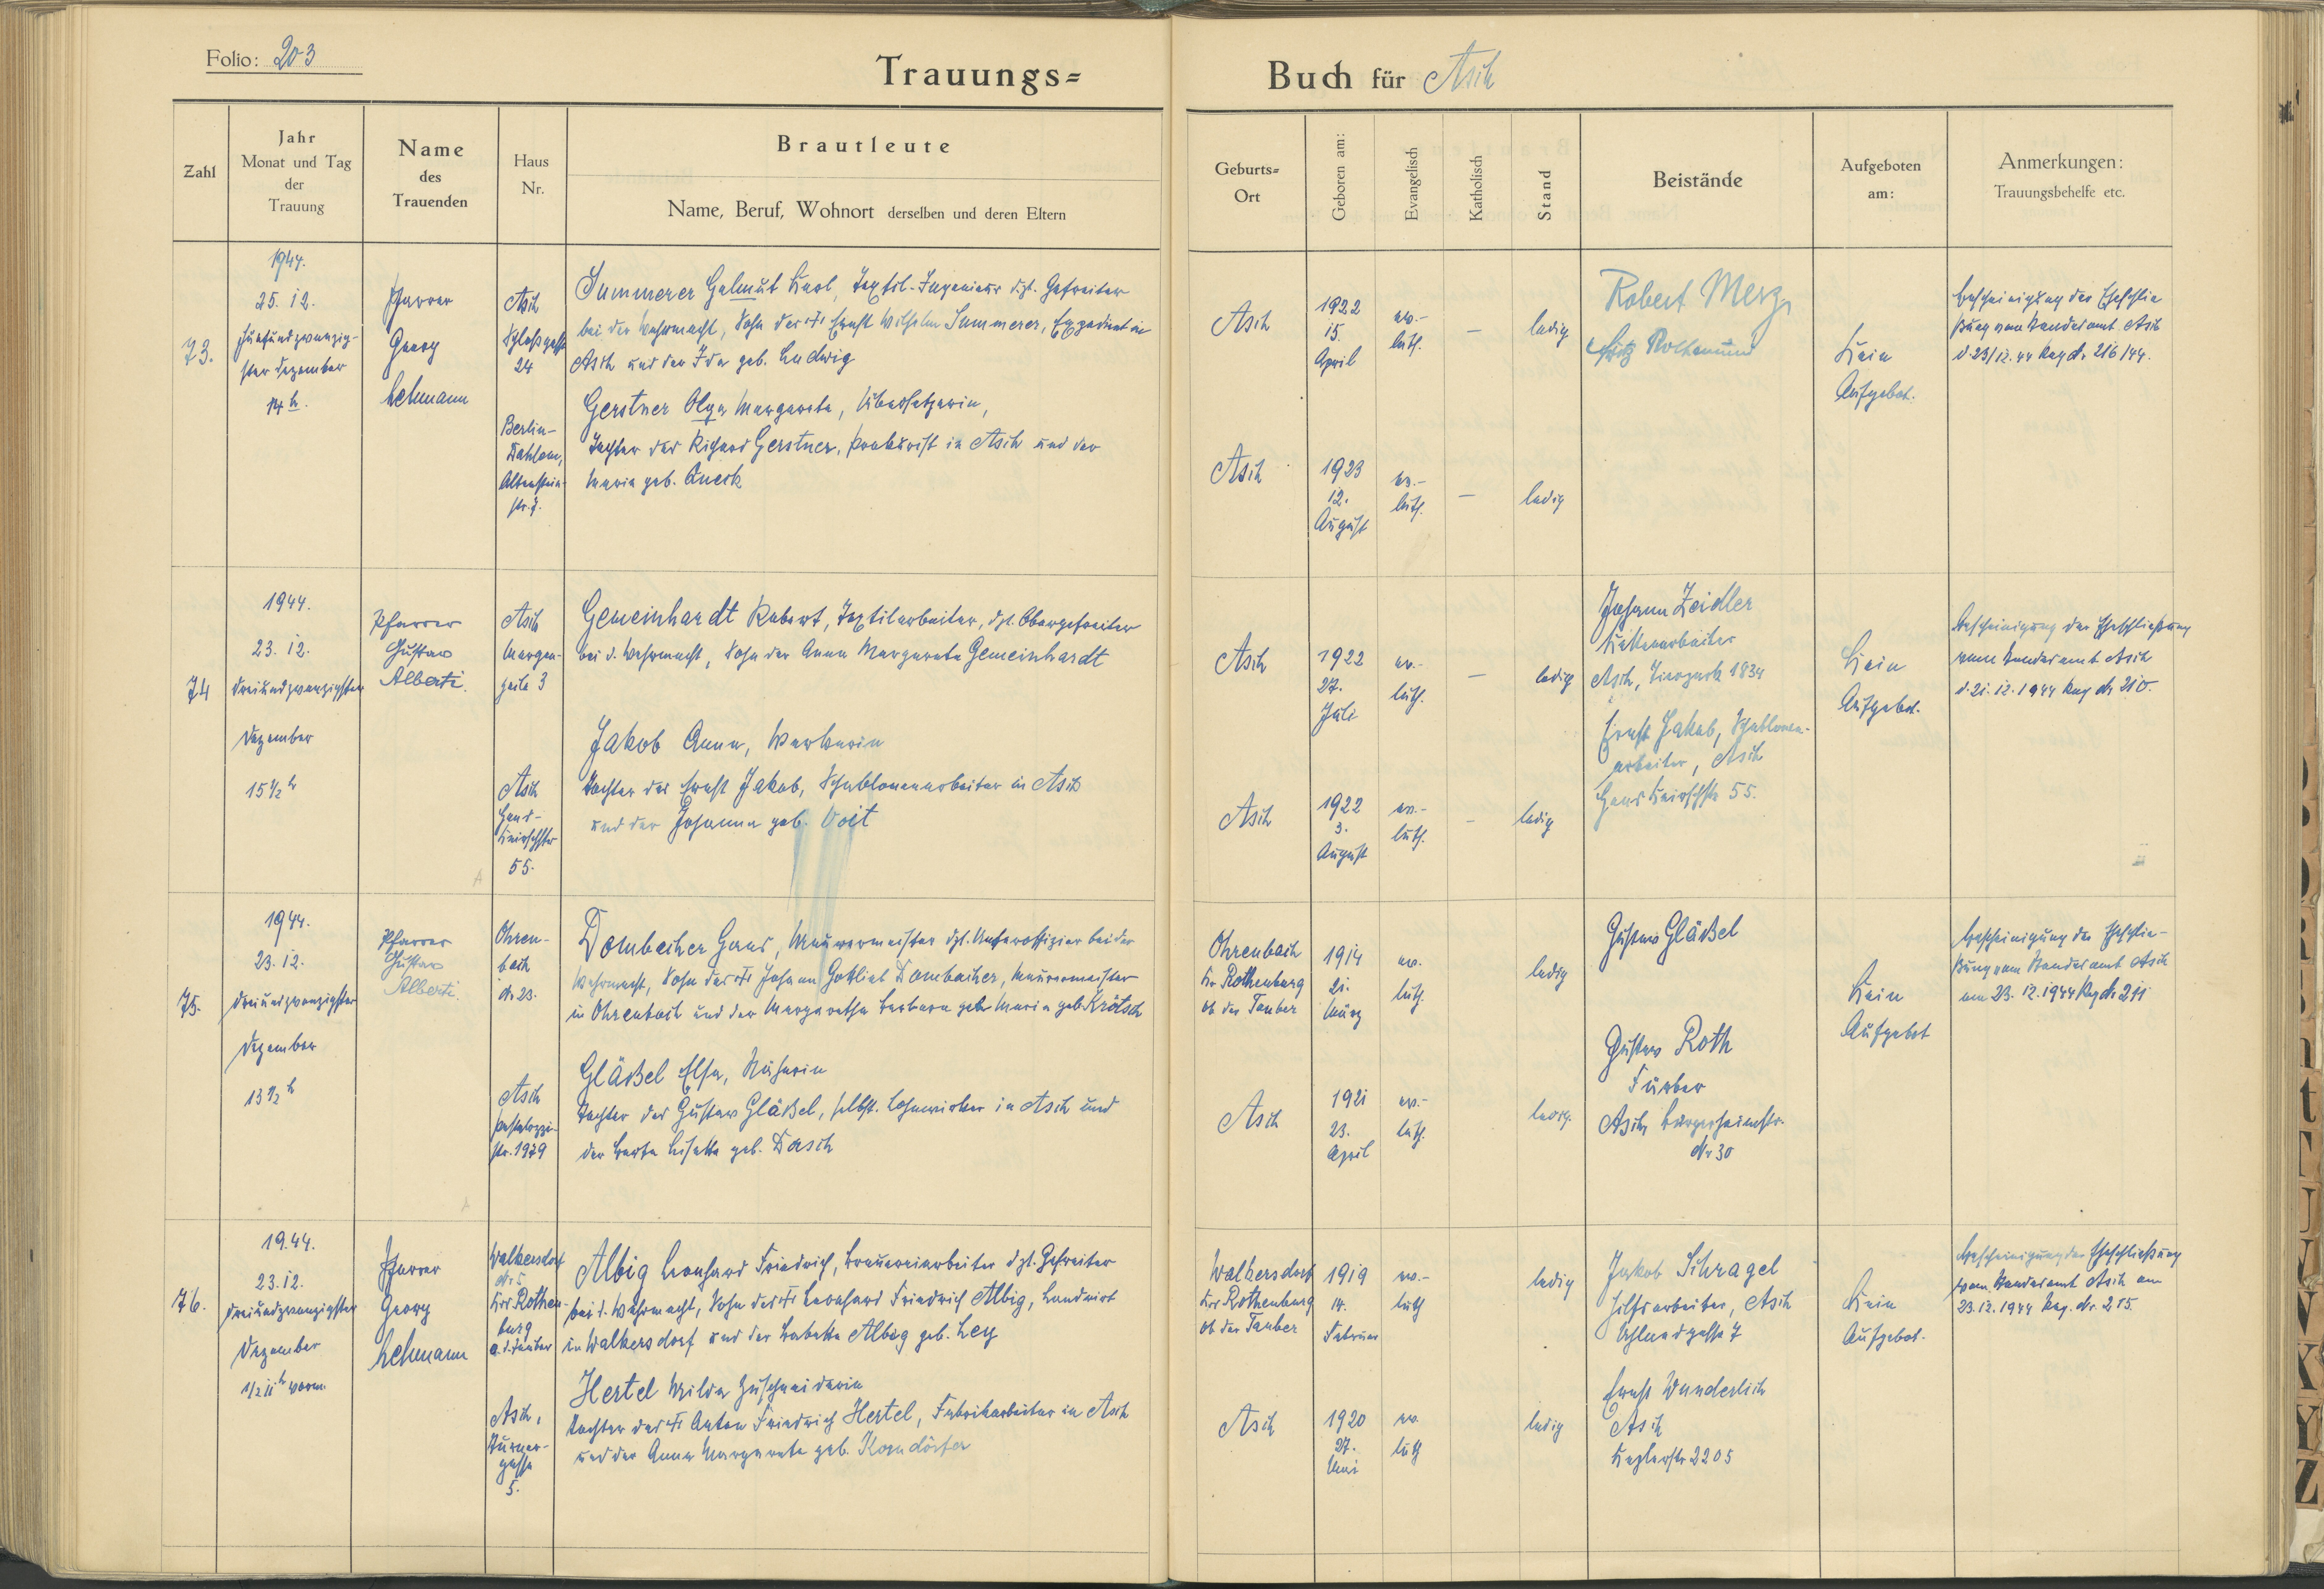 Folio: 203
Trauungs=
Buch für Asch
Zahl
Jahr
Monat und Tag
der
Trauung
Name
des
Trauenden
Haus
Nr.
Brautleute
Name, Beruf, Wohnort derselben und deren Eltern
Geburts=
Ort
Geboren am:
Evangelisch
Katholisch
Stand
Beistände
Aufgeboten
am:
Anmerkungen:
Trauungsbehelfe etc.
73.
1944.
25. 12.
fünfundzwanzig-
ster Dezember
14 h.
Pfarrer
Georg
Lehmann
Asch
Schloßgasse
24
Summerer Helmut Karl, Textil-Ingenieur dzt. Gefreiter
bei der Wehrmacht, Sohn des Ernst Wilhelm Summerer, Expedient in
Asch und der Ida geb. Ludwig
Berlin-
Dahlem,
Altenstein-
str.
Gerstner Olga Margareta, Übersetzerin,
Tochter des Richard Gerstner, Prokurist in Asch und der
Maria geb. Queck
Asch
1922
15.
April
ev.-
luth.
—
ledig
Asch
1923
12.
August
ev.-
luth.
—
ledig
Robert Merz
Fritz Rothemund
Kein
Aufgebot.
Bescheinigung der Eheschlie
ßung vom Standesamt Asch
d. 23/12. 44 Reg Nr. 216/44.
74
1944.
23. 12.
dreiundzwanzigster
Dezember
15 1/2 h
Pfarrer
Gustav
Alberti.
Asch
Morgen-
zeile 3
Gemeinhardt Robert, Textilarbeiter, dzt. Obergefreiter
bei d. Wehrmacht, Sohn der Anna Margareta Gemeinhardt
Asch
Hans-
Knirschstr
55.
Jakob Anna, Wirkerin
Tochter des Ernst Jakob, Schablonenarbeiter in Asch
und der Johanna geb. Voit
Asch
1922
27.
Juli
ev.-
luth.
—
ledig
Asch
1922
3.
August
ev.-
luth.
-
ledig
Johann Zeidler
Asch, 1834
Ernst Jakob, Schablonen-
arbeiter, Asch
Hans Knirschstr 55.
Kein
Aufgebot.
Bescheinigung der Eheschließung
vom Standesamt Asch
d. 21. 12. 1944 Reg Nr 210.
75.
1944.
23. 12.
dreiundzwanzigster
Dezember
13 1/2 h
Pfarrer
Gustav
Alberti.
Ohren-
bach
Nr 23.
Dombacher Hans, Maurermeister dzt. Unteroffizier bei der
Wehrmacht, Sohn des Johann Gottlieb Dombacher, Maurermeister
in Ohrenbach und der Margaretha Barbara Maria geb. Krötsch
Asch
Pestalozzi-
str. 1979
Gläßel Elsa, Näherin
Tochter des Gustav Gläßel, selbst. Lohnwirker in Asch und
der Berta Lisette geb. Dasch
Ohrenbach
Kr. Rothenburg
ob der Tauber
1914
21.
März
ev.
luth.
ledig
Asch
1921
23.
April
ev.-
luth.
ledig.
Gustav Gläßel
Gustav Roth
Färber
Asch, Bürgerheimstr.
Nr 30
Kein
Aufgebot
Bescheinigung der Eheschlie-
ßung vom Standesamt Asch
am 23. 12. 1944 Reg Nr 211
76.
1944.
23. 12.
dreiundzwanzigster
Dezember
1/2 11 h vorm.
Pfarrer
Georg
Lehmann
Walkersdorf
Nr 5
Krs. Rothen-
burg
o. d. Tauber
Albig Leonhard Friedrich, Brauereiarbeiter dzt. Gefreiter
bei d. Wehrmacht, Sohn des Leonhard Friedrich Albig, Landwirt
in Walkersdorf und der Babette Albig geb. Ley
Asch,
Turner-
gasse
5.
Hertel Milda Zuschneiderin
Tochter des Anton Friedrich Hertel, Fabrikarbeiter in Asch
und der Anna Margareta geb. Korndörfer
Walkersdorf
Krs. Rothenburg
ob der Tauber
1919
14.
Februar
ev.-
luth
ledig
Asch
1920
27.
Mai
ev.
luth
ledig
Jakob Schragel
Hilfsarbeiter, Asch
Uhlandgasse 7
Ernst Wunderlich
Asch
Keplerstr 2205
Kein
Aufgebot.
Bescheinigung der Eheschließung
vom Standesamt Asch am
23. 12. 1944 Reg. Nr. 215.